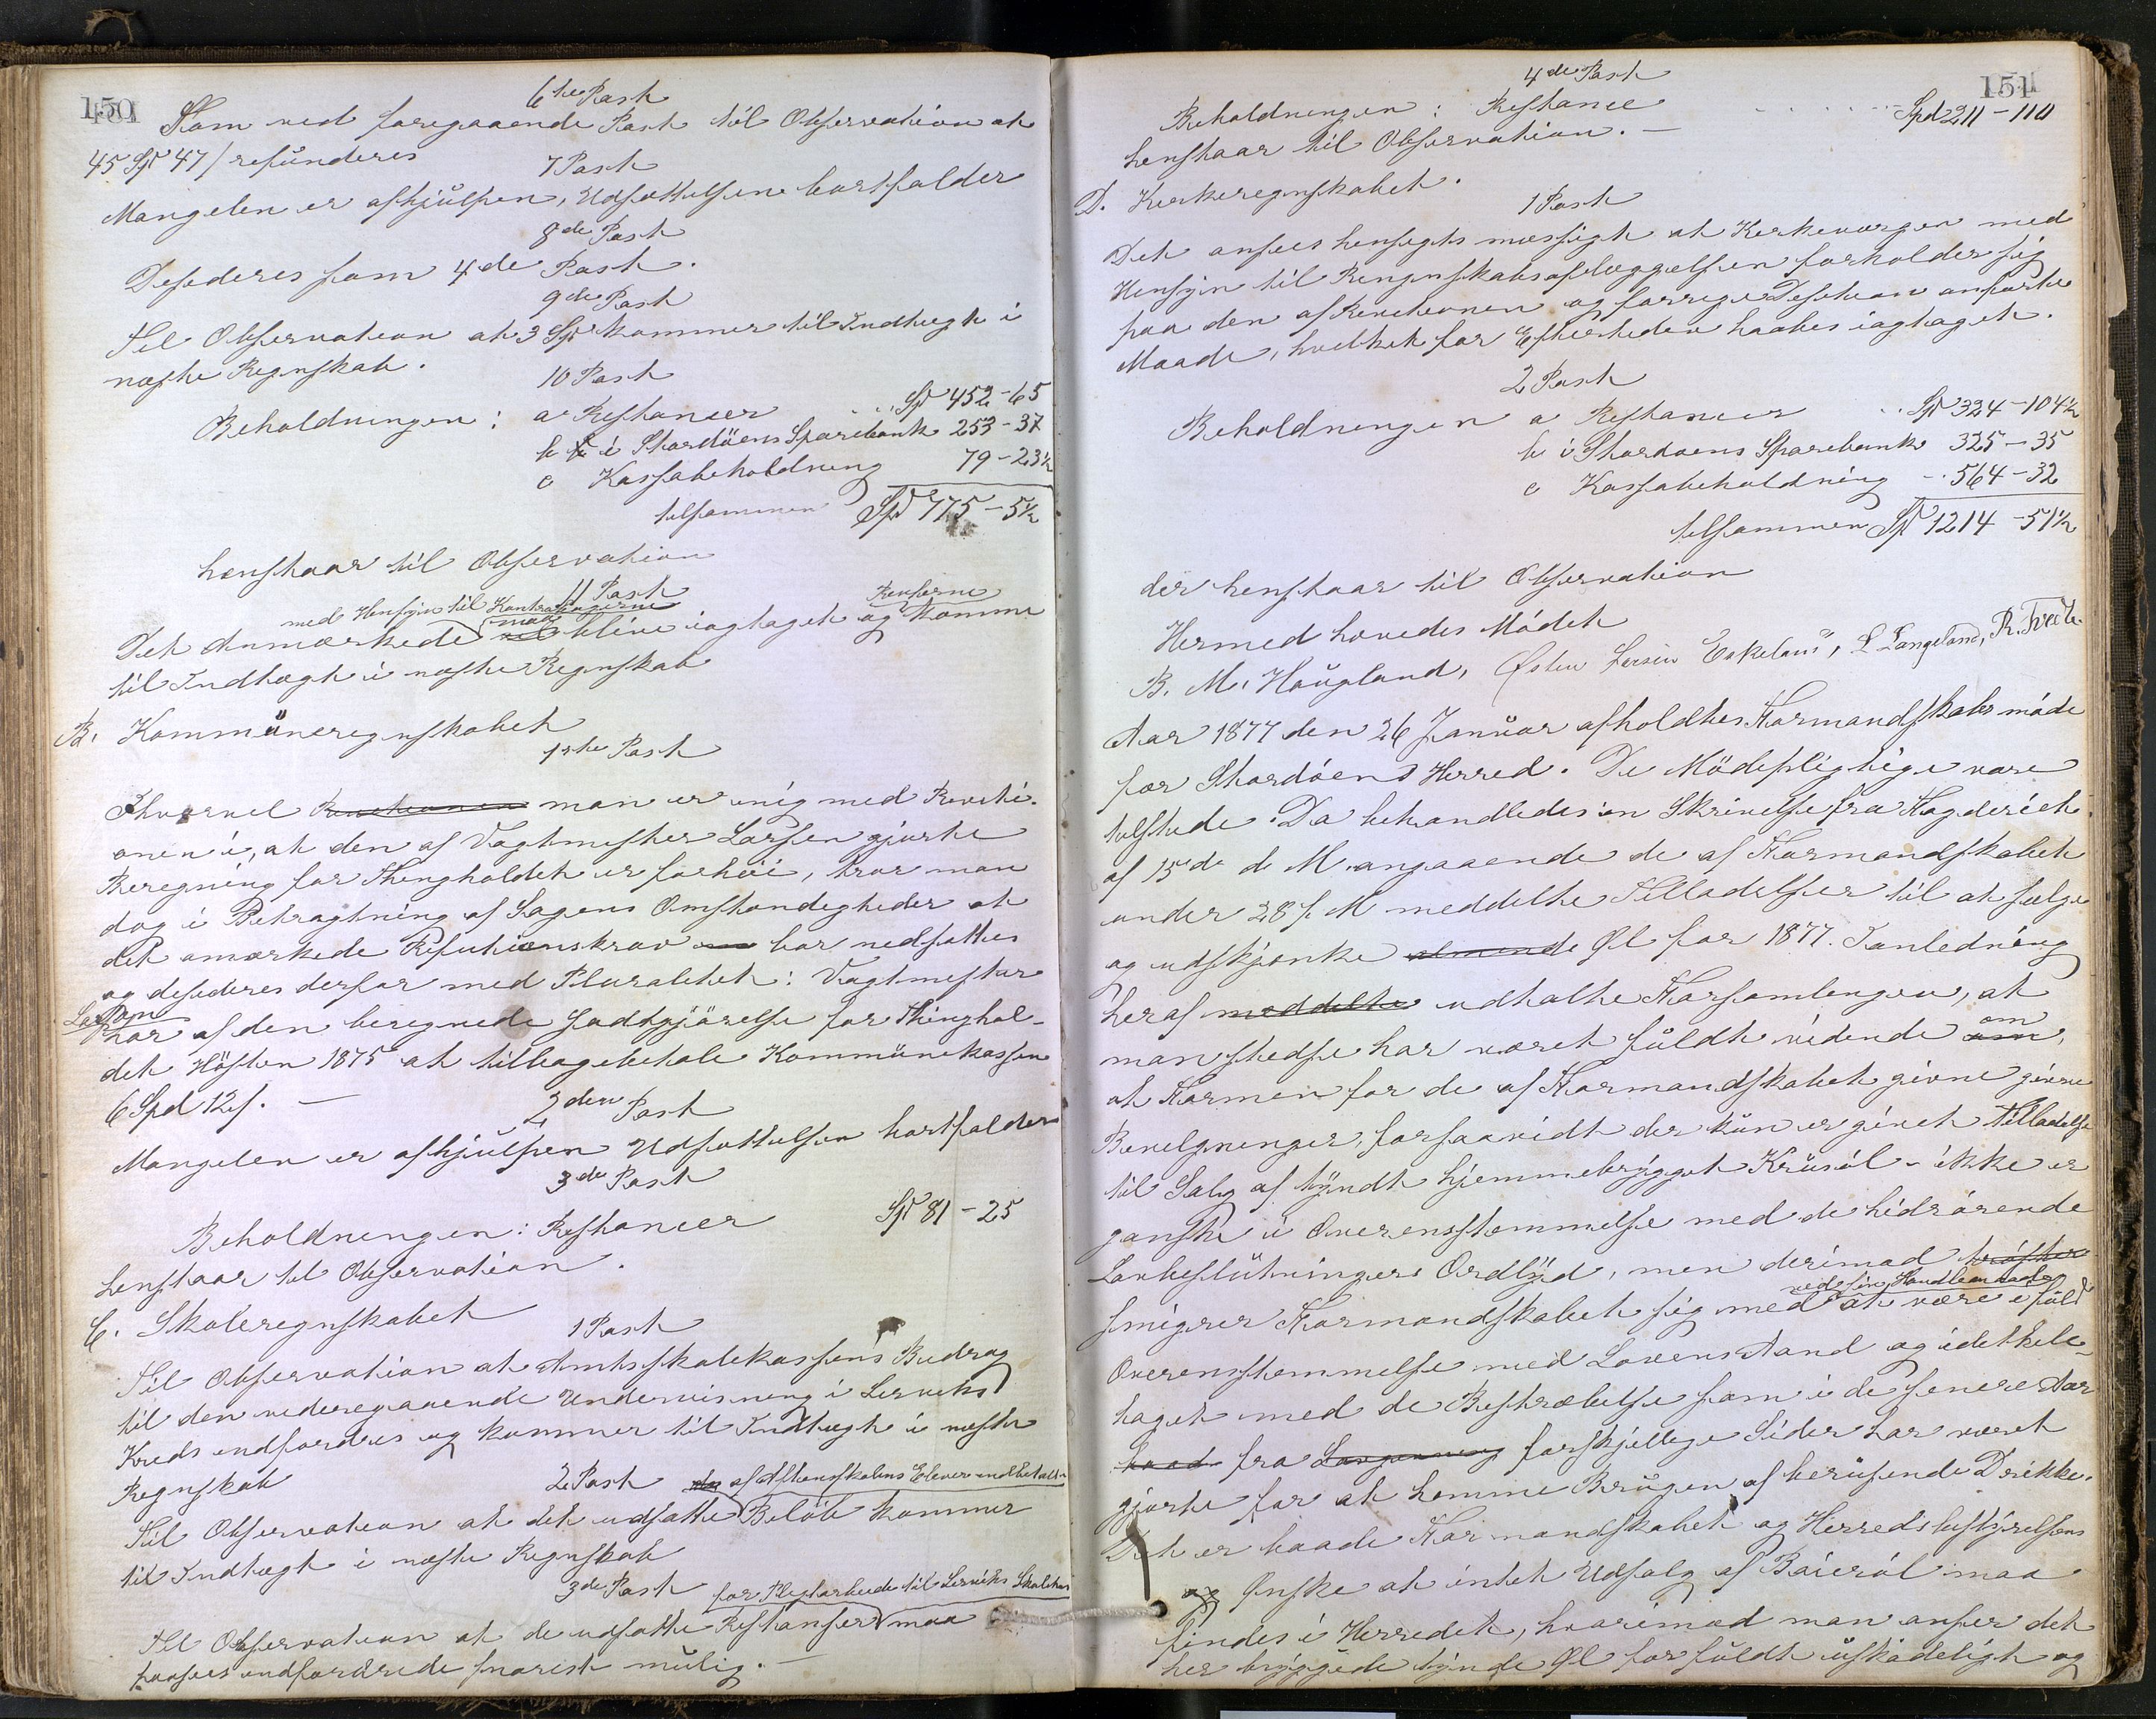 150
6te Post
Som ved foregaaende Post til Observation at
45 Spd 47 s refunderes
7 Post
Mangelen er afhjulpen, Udsættelsen bortfalder
8de Post
Desideres som 4de Post.
9de Post
Til Observation at 3 Spd kommer til Indtægt i
næste Regnskab.
10 Post
Beholdningen: a Restancer Spd 452-65
b i Stordöens Sparebank 253-37
c Kassabeholdning 79-23½
tilsammen Spd 775-5½
henstaar til Observation
11 Post
med Hensyn til Kontrabøgerne Renterne
Det Anmærkede maa blive iagtaget og komme
til Indtægt i næste Regnskab
B. Kommüneregnskabet
1ste Post
Ihvorvel Revisionen man er enig med Revisi-
onen i, at den af Vagtmester Larsen gjorte
Beregning for Thingholdet er forhöi, tror man
dog i Betragtning af Sagens Omstændigheder at
det amærkede Refutionskrav bør nedsættes
og desideres derfor med Pluralitet: Vagtmester
Larsen
har af den beregnede Godtgjörelse for Thinghol-
det Hösten 1875 at tilbagebetale Kommünekassen
6 Spd 12 s. —
2den Post
Mangelen er afhjulpen Udsættelsen bortfalder
3de Post
Beholdningen: Restancer Spd 81-25
henstaar til Observation.
C. Skoleregnskabet
1 Post
Til Observation at Amtsskolekassens Bidrag
til den videregaaende Undervisning i Lerviks
Kreds indfordres og kommer til Indtægt i næste
Regnskab
2 Post af Aftenskolens Elever indbetalte
Til Observation at det udsatte Belöb kommer
til Indtægt i næste Regnskab
3de Post for Pligtarbeide til Lerviks Skolehus
Til Observation at de udsatte Restanser maa
paasees indfordrede snarest mülig. —
151
4de Post
Beholdningen: Restance Spd 211-110
henstaar til Observation. —
D. Kirkeregnskabet.
1 Post
Det ansees hensigtsmæssigt at Kirkeværgen med
Hensyn til Rengnskabsaflæggelsen forholder sig
paa den af Revisionen og forrige Desision anførte
Maade, hvilket for Efterheden haabes iagtaget.
2 Post
Beholdningen a Restancer Spd 324-104½
b i Stordoens Sparebank 325-35
c Kassabeholdning 564-32
tilsammen Spd 1214-51½
der henstaar til Observation
Hermed hævedes Mödet
B. M. Haügland, Østen Larsen Eskeland, L Langeland, R. Tveite.
Aar 1877 den 26 Januar afholdtes Formandskabsmöde
for Stordöens Herred. De Mödepligtige vare
tilstede. Da behandledes en Skrivelse fra Fogderiet
af 15de d M. angaaende de af Formandskabet
under 28 f. M meddelte Tilladelser til at sælge
og udskjænke almende Øl for 1877. I anledning
heraf meddelte udtalte Forsamlingen, at
om
man stedse har været füldt vidende om,
at Formen for de af Formandskabet givne givne
Bevilgninger, forsaavidt der kün er givet Tilladelse
til Salg af tyndt hjemmebrygget Krüsöl – ikke er
ganske i Overensstemmelse med de hidrörende
Lovbeslütningers Ordlyd, men derimod tröster
ved sin Handlemaade
smigrer Formandskabet sig med at være i füld
Overensstemmelse med Lovens Aand og idethele
taget med de Bestræbelse som i de senere Aar
baade fra forskjellige Sider har været
gjorte for at hemme Brügen af berüsende Drikke.
Det er baade Formandskabet og Herredsbestyrelsens
og Ønske at intet Udsalg af Baieröl maa
findes i Herredet, hvorimod man anser det
her bryggede tynde Øl for füldt üskadeligt og